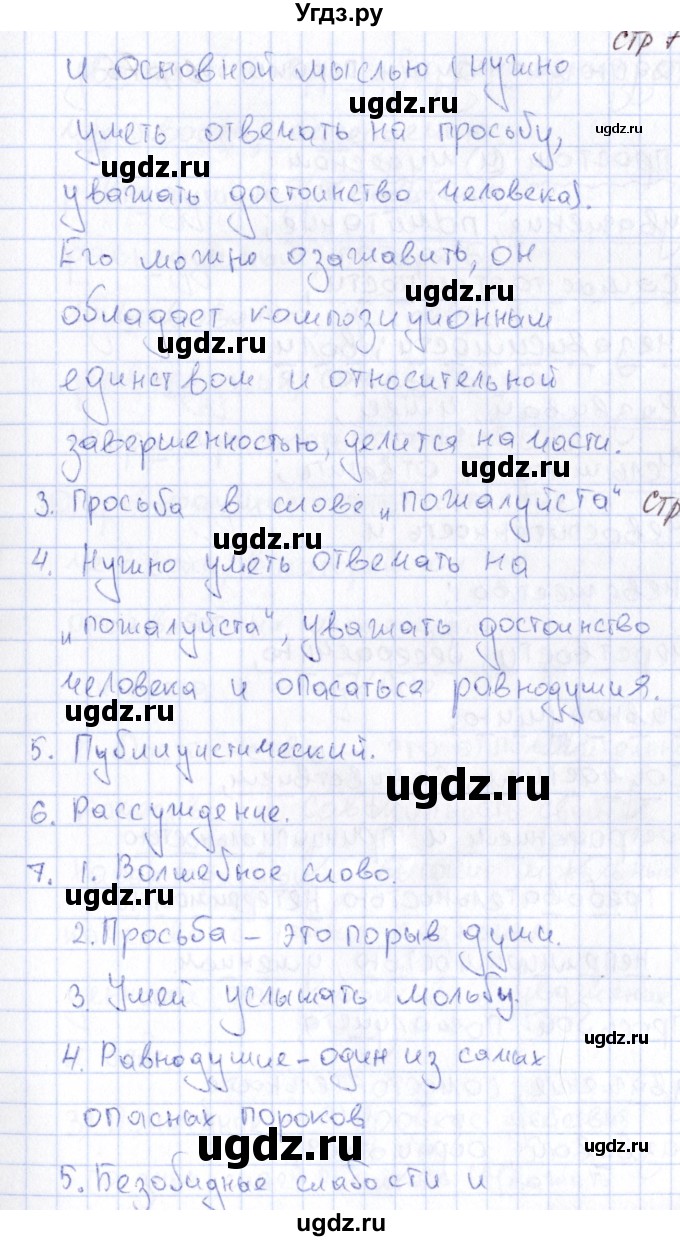 Угдз.ру
стр 7
и основной мыслью (нужно
ugdz.ru
уметь отвечать на просьбу,
ugdz.ru
ugdz.ru
уважать достоинство человека).
Его можно озаглавить, он
ugdz.ru
обладает композиционным
ugdz.ru
единством и относительной
завершенностью, делится на части.
ugdz.ru
3. Просьба в слове „пожалуйста“
стр
ugdz.ru
4. Нужно уметь отвечать на
„пожалуйста“, уважать достоинство
ugdz.ru
человека и опасаться равнодушия.
ugdz.ru
5. Публицистический.
ugdz.ru
6. Рассуждение.
ugdz.ru
7. 1. Волшебное слово.
ugdz.ru
2. Просьба – это порыв души.
3. Умей услышать мольбу.
ugdz.ru
4. Равнодушие – один из самых
опасных пороков
ugdz.ru
ugdz.ru
5. Безобидные слабости и
ugdz.ru